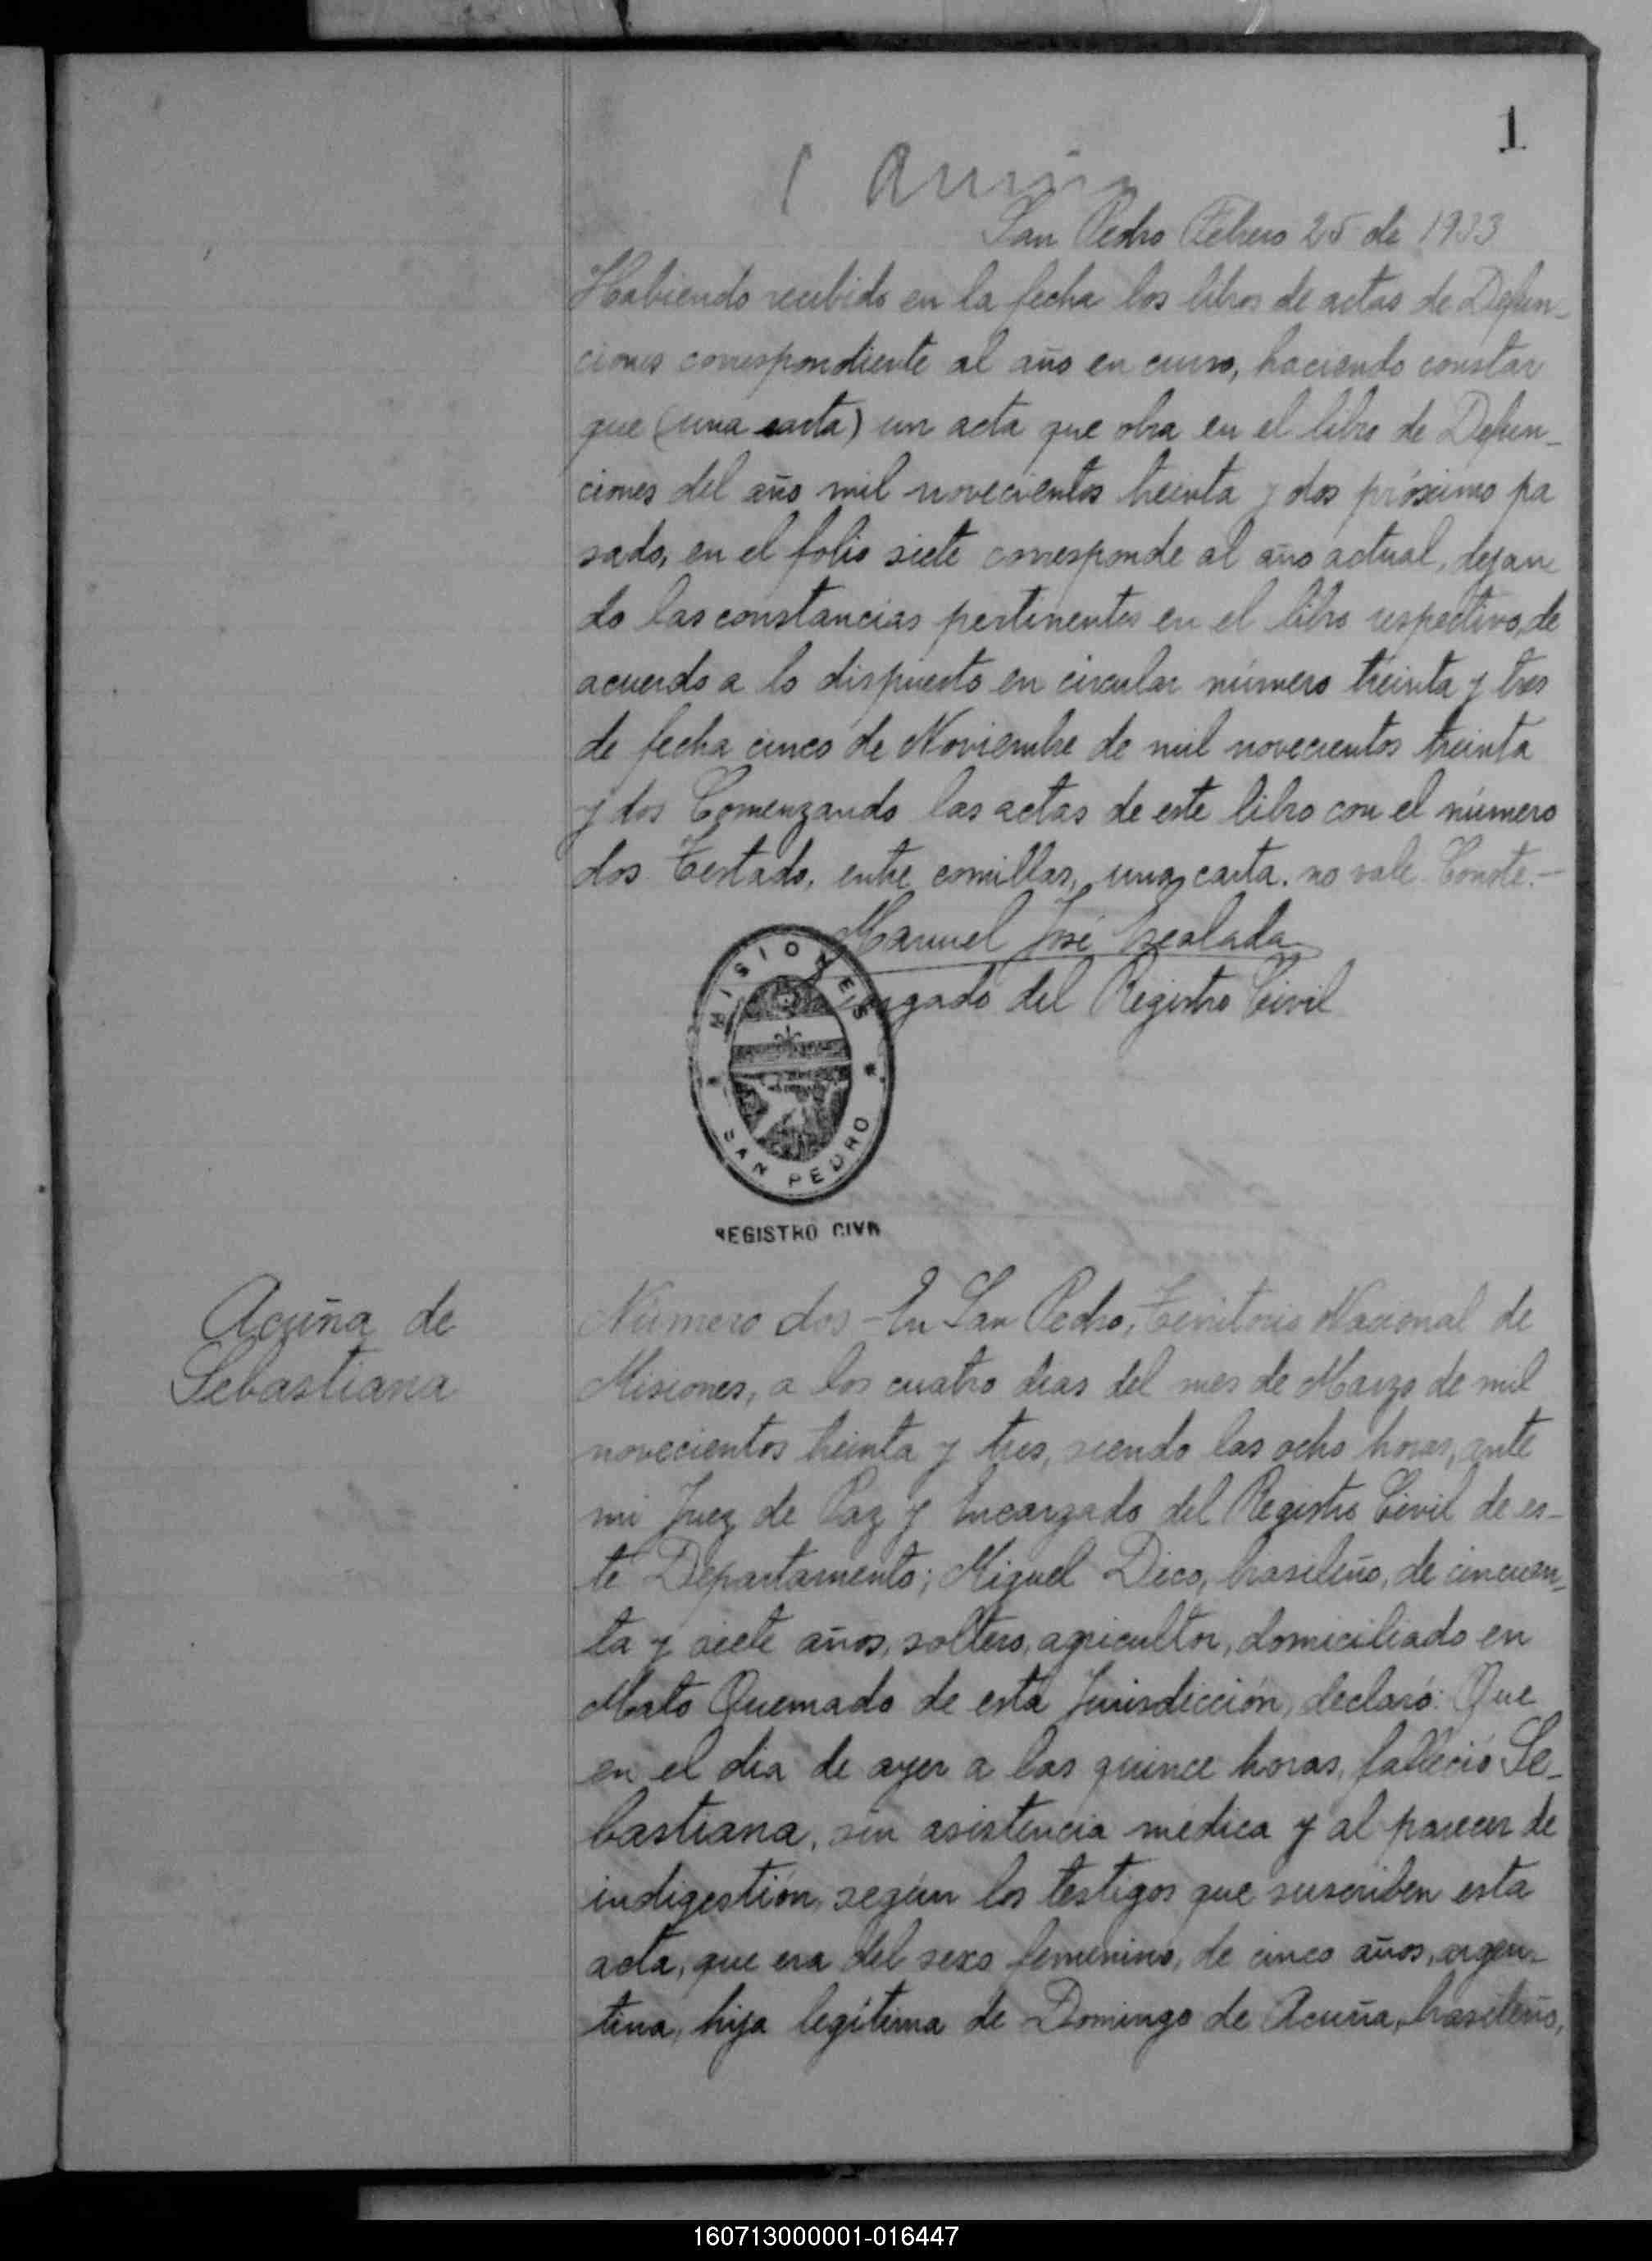 1
San Pedro Febrero 25 de 1933
Habiendo recibido en la fecha los libros de actas de Defun-
ciones correspondiente al año en curso, haciendo constar
que (una carta) un acta que obra en el libro de Defun-
ciones del año mil novecientos treinta y dos próximo pa
sado, en el folio siete corresponde al año actual, dejan
do las constancias pertinentes en el libro respectivo, de
acuerdo a lo dispuesto en circular número treinta y tres
de fecha cinco de Noviembre de mil novecientos treinta
y dos Comenzando las actas de este libro con el número
dos Testado, entre comillas, una carta. no vale. Conste.-
Manuel José
del Registro Civil
MISIONES
SAN PEDRO
REGISTRO CIVIL
Acuña de
Sebastiana
Número dos - En San Pedro, Territorio Nacional de
Misiones, a los cuatro dias del mes de Marzo de mil
novecientos treinta y tres, siendo las ocho horas, ante
mi Juez de Paz y Encargado del Registro Civil de es-
te Departamento; Miguel Dico, brasileño, de cincuen-
ta y siete años, soltero, agricultor, domiciliado en
Mato Quemado de esta Jurisdicción, declaró: Que
en el dia de ayer a las quince horas, falleció Se-
bastiana, sin asistencia médica y al parecer de
indigestión, según los testigos que suscriben esta
acta, que era del sexo femenino, de cinco años, argen-
tina, hija legítima de Domingo de Acuña, brasileño,
160713000001-016447